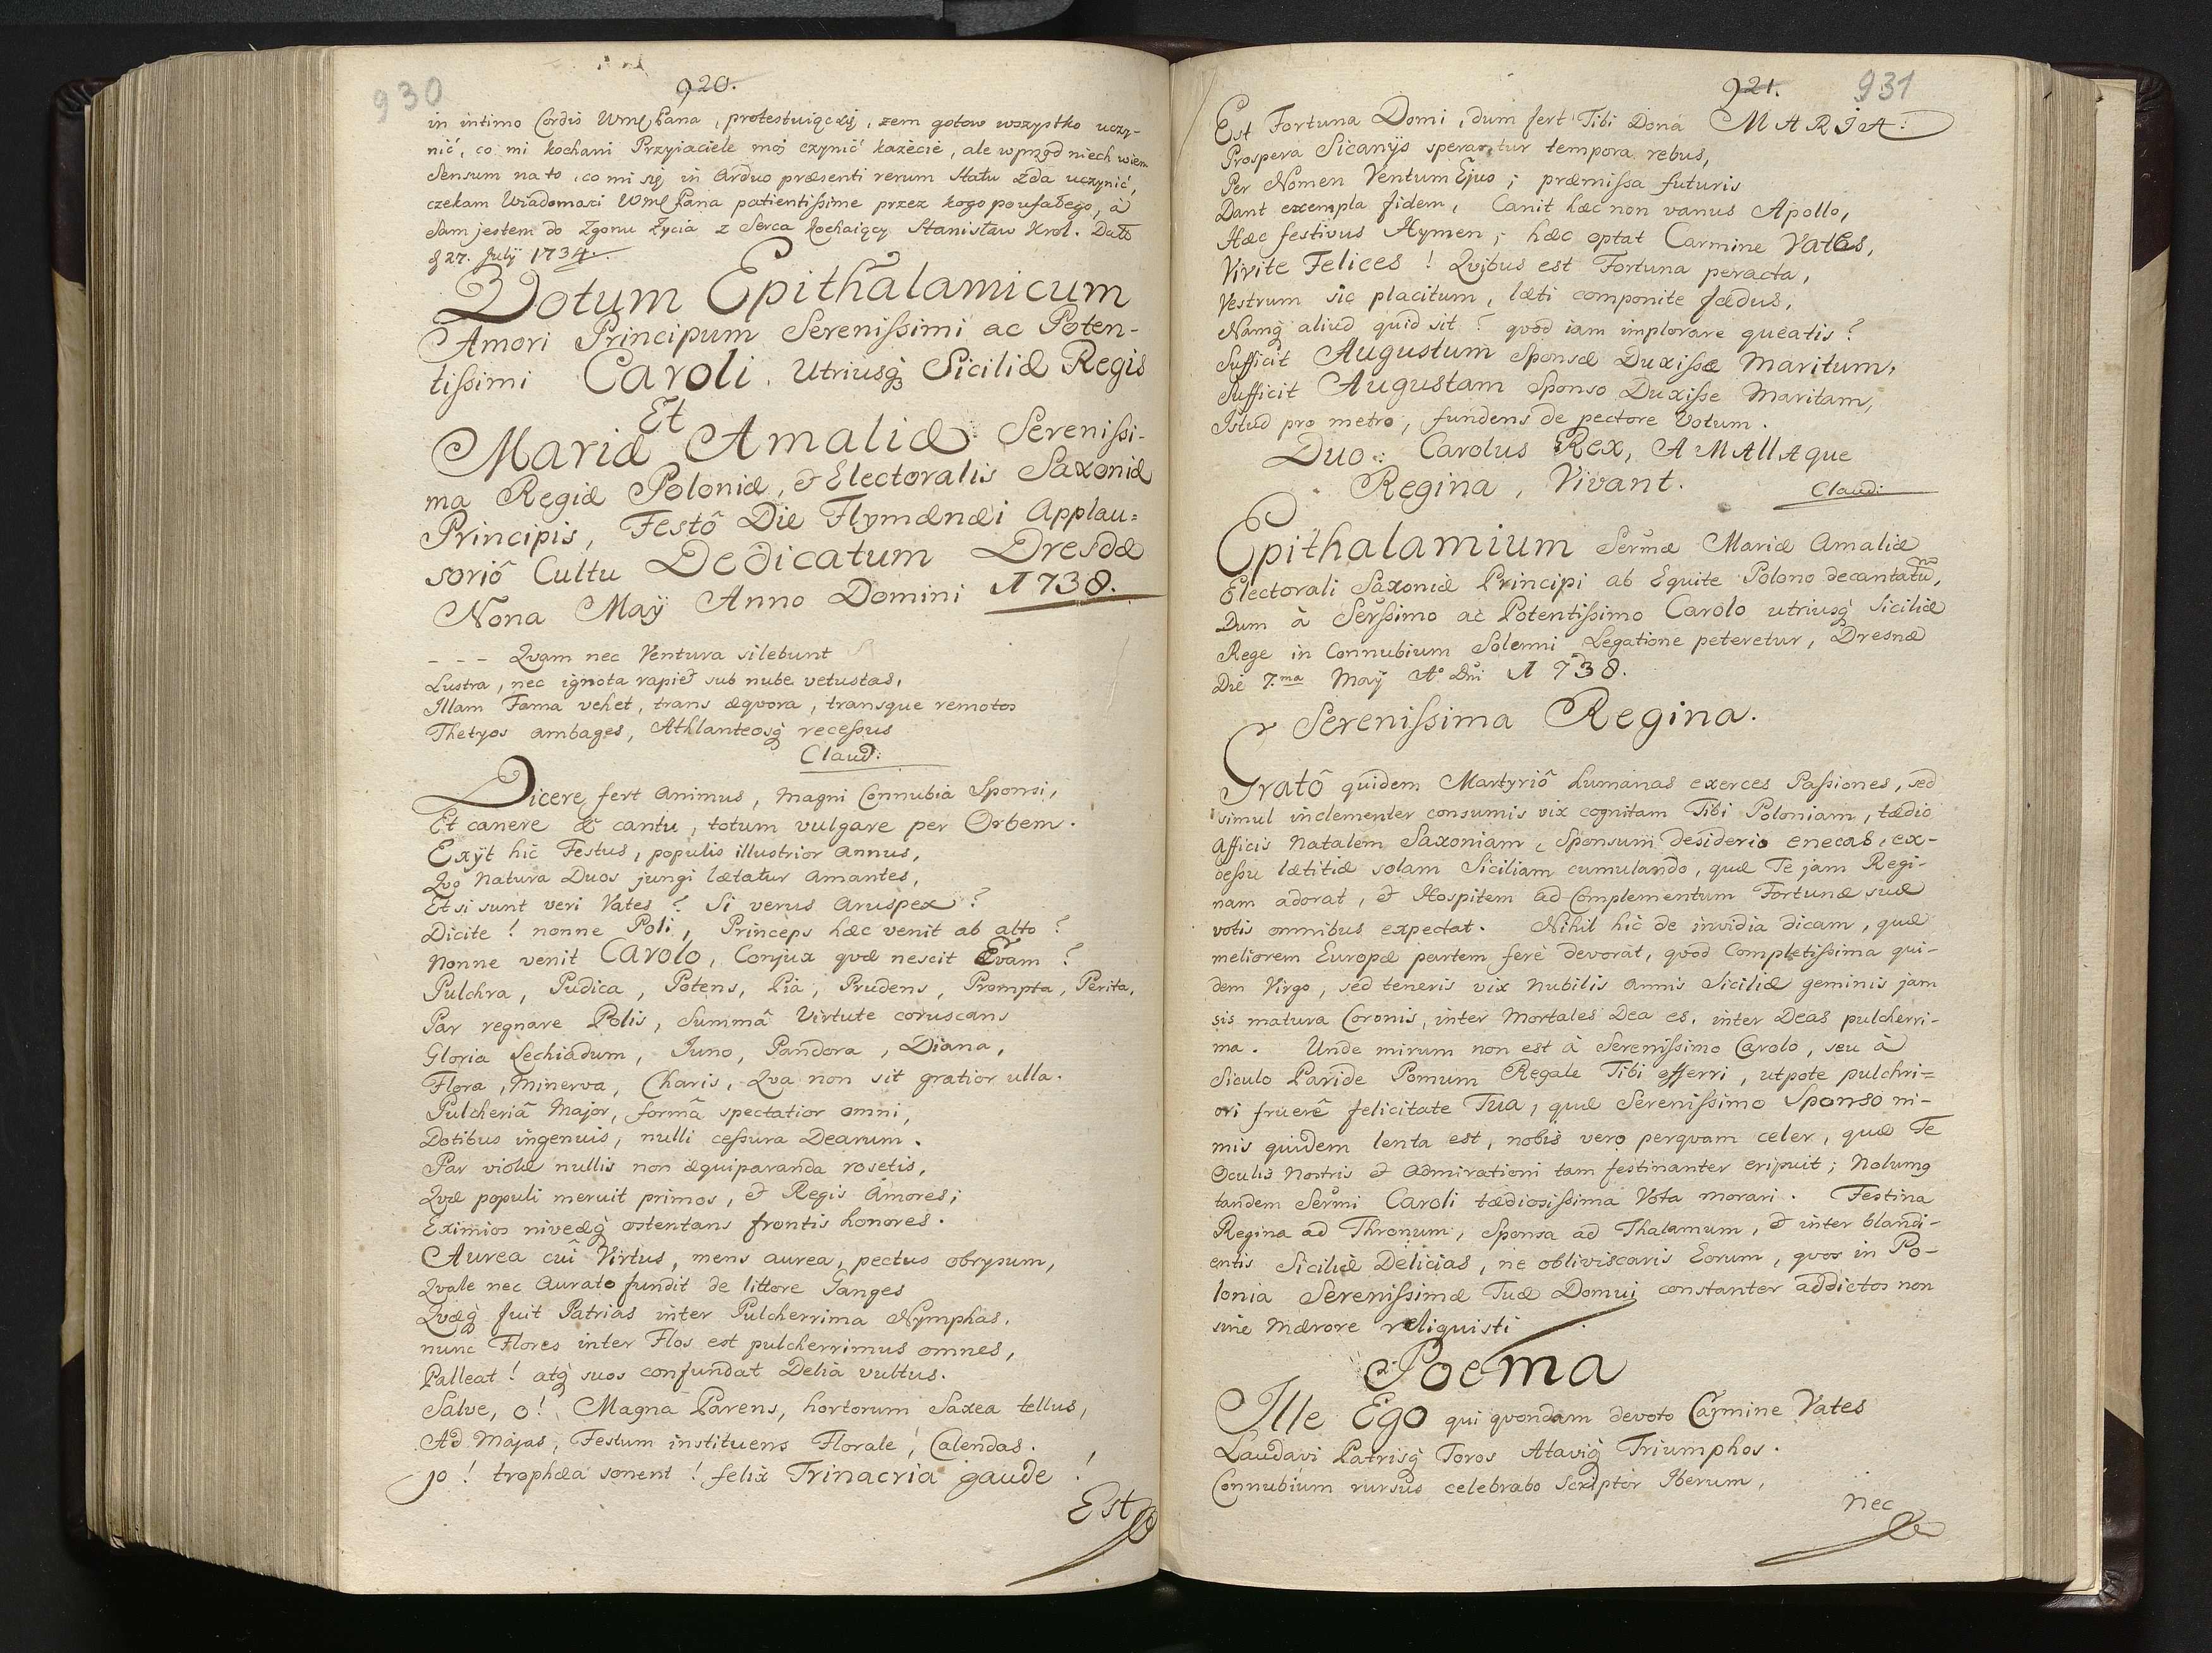 930
920.
in intimo Cordis Wmę Pana, protestuiąc się, zem gotow wszystko uczy-
nić, co mi kochani Przyiaciele moi czynić każecie, ale wprzod niech wiem
Sensum na to, co mi się in arduo præsenti rerum statu zda uczynić,
czekam Wiadomości Wmę Pana patientissime przez kogo poufałego, à
Sam jestem do Zgonu życia z Serca kochaiący Stanisław Krol. Dato
d 27. Julÿ 1734.
Votum Epithalamicum
Amori Principum Serenissimi ac Poten-
tissimi Caroli. Utriusq Siciliæ Regis
Et
Mariæ Amaliæ Serenissi-
ma Regiæ Poloniæ, & Electoralis Saxoniæ
Principis, Festô Die Hymænæi Applau=
soriô Cultu Dedicatum Dresdæ
Nona Maÿ Anno Domini 1738.
- - - Qvam nec Ventura silebunt
Lustra, nec ignota rapiet sub nube vetustas,
Illam Fama vehet, trans æqvora, transque remotos
Thetyos ambages, Athlanteosq recessus
Claud:
Dicere fert Animus, magni Connubia Sponsi,
Et canere & cantu, totum vulgare per Orbem.
Exÿt hic Festus, populis illustrior annus,
Qvo Natura Duos jungi lætatur amantes,
Et si sunt veri Vates? Si verus Aruspex?
Dicite! nonne Poli, Princeps hæc venit ab alto?
Nonne venit Carolo, Conjux qvæ nescit Evam?
Pulchra, Pudica, Potens, Pia, Prudens, Prompta, Perita,
Par regnare Polis, Summâ Virtute coruscans
Gloria Lechiadum, Juno, Pandora, Diana,
Flora, Minerva, Charis, Qva non sit gratior ulla.
Pulcheriâ Major, formâ spectatior omni,
Dotibus ingenuis, nulli cessura Dearum.
Par violæ nullis non æquiparanda rosetis,
Qvæ populi meruit primos, & Regis Amores;
Eximios niveæq ostentans frontis honores.
Aurea cui Virtus, mens aurea, pectus obrysum,
Qvale nec Aurato fundit de littore Ganges
Qvæq fuit Patrias inter Pulcherrima Nymphas.
nunc Flores inter Flos est pulcherrimus omnes,
Palleat! atq suos confundat Delia vultus.
Salve, o! Magna Parens, hortorum Saxea tellus,
Ad Majas, Festum instituens Florale, Calendas.
Jo! trophæa sonent! felix Trinacria gaude!
Est
921.
931
Est Fortuna Domi, dum fert Tibi Dona MARIA:
Prospera Sicanÿs sperantur tempora rebus,
Per Nomen Ventum Ejus; præmissa futuris
Dant exempla fidem, Canit hæc non vanus Apollo,
Hæc festivus Hymen; hæc optat Carmine Vates,
Vivite Felices! Qvibus est Fortuna peracta,
Vestrum sic placitum, læti componite fædus,
Namq aliud quid sit? quod iam implorare queatis?
Sufficit Augustum Sponsæ Duxissæ Maritum,
Sufficit Augustam Sponso Duxisse Maritam,
Istud pro metro, fundens de pectore Votum.
Duo: Carolus Rex, AMAlIAque
Regina, Vivant.
Claud:
Epithalamium Sermæ Mariæ Amaliæ
Electorali Saxoniæ Principi ab Equite Polono decantatum,
Dum à Serssimo ac Potentissimo Carolo utriusq Siciliæ
Rege in Connubium Solenni Legatione peteretur, Dresnæ
Die 7.ma Maÿ Ao Dni 1738.
Serenissima Regina.
Gratô quidem Martyriô humanas exerces Passiones, sed
simul inclementer consumis vix cognitam Tibi Poloniam, tædio
afficis Natalem Saxoniam, Sponsum desiderio enecas, ex-
cessu lætitiæ solam Siciliam cumulando, quæ Te jam Regi-
nam adorat, & Hospitem ad Complementum Fortunæ suæ
votis omnibus expectat. Nihil hic de invidia dicam, quæ
meliorem Europæ partem fere devorat, quod Completissima qui-
dem Virgo, sed teneris vix nubilis annis Siciliæ geminis jam
sis matura Coronis, inter Mortales Dea es, inter Deas pulcherri-
ma. Unde mirum non est à Serenissimo Carolo, seu à
Siculo Paride Pomum Regale Tibi offerri, utpote pulchri=
ori fruerê felicitate Tua, quæ Serenissimo Sponso ni-
mis quidem lenta est, nobis vero perqvam celer, quæ Te
Oculis Nostris & admirationi tam festinanter eripuit; Nolumq
tandem Sermi Caroli tædiosissima Vota morari. Festina
Regina ad Thronum, Sponsa ad Thalamum, & inter blandi-
entis Siciliæ Delicias, ne obliviscaris Eorum, qvos in Po-
lonia Serenissimæ Tuæ Domui constanter addictos non
sine Mærore reliquisti
Poema
Ille Ego qui qvondam devoto Carmine Vates
Laudavi Patrisq Toros Atavîq Triumphos.
Connubium rursus celebrabo scriptor Iberum,
nec